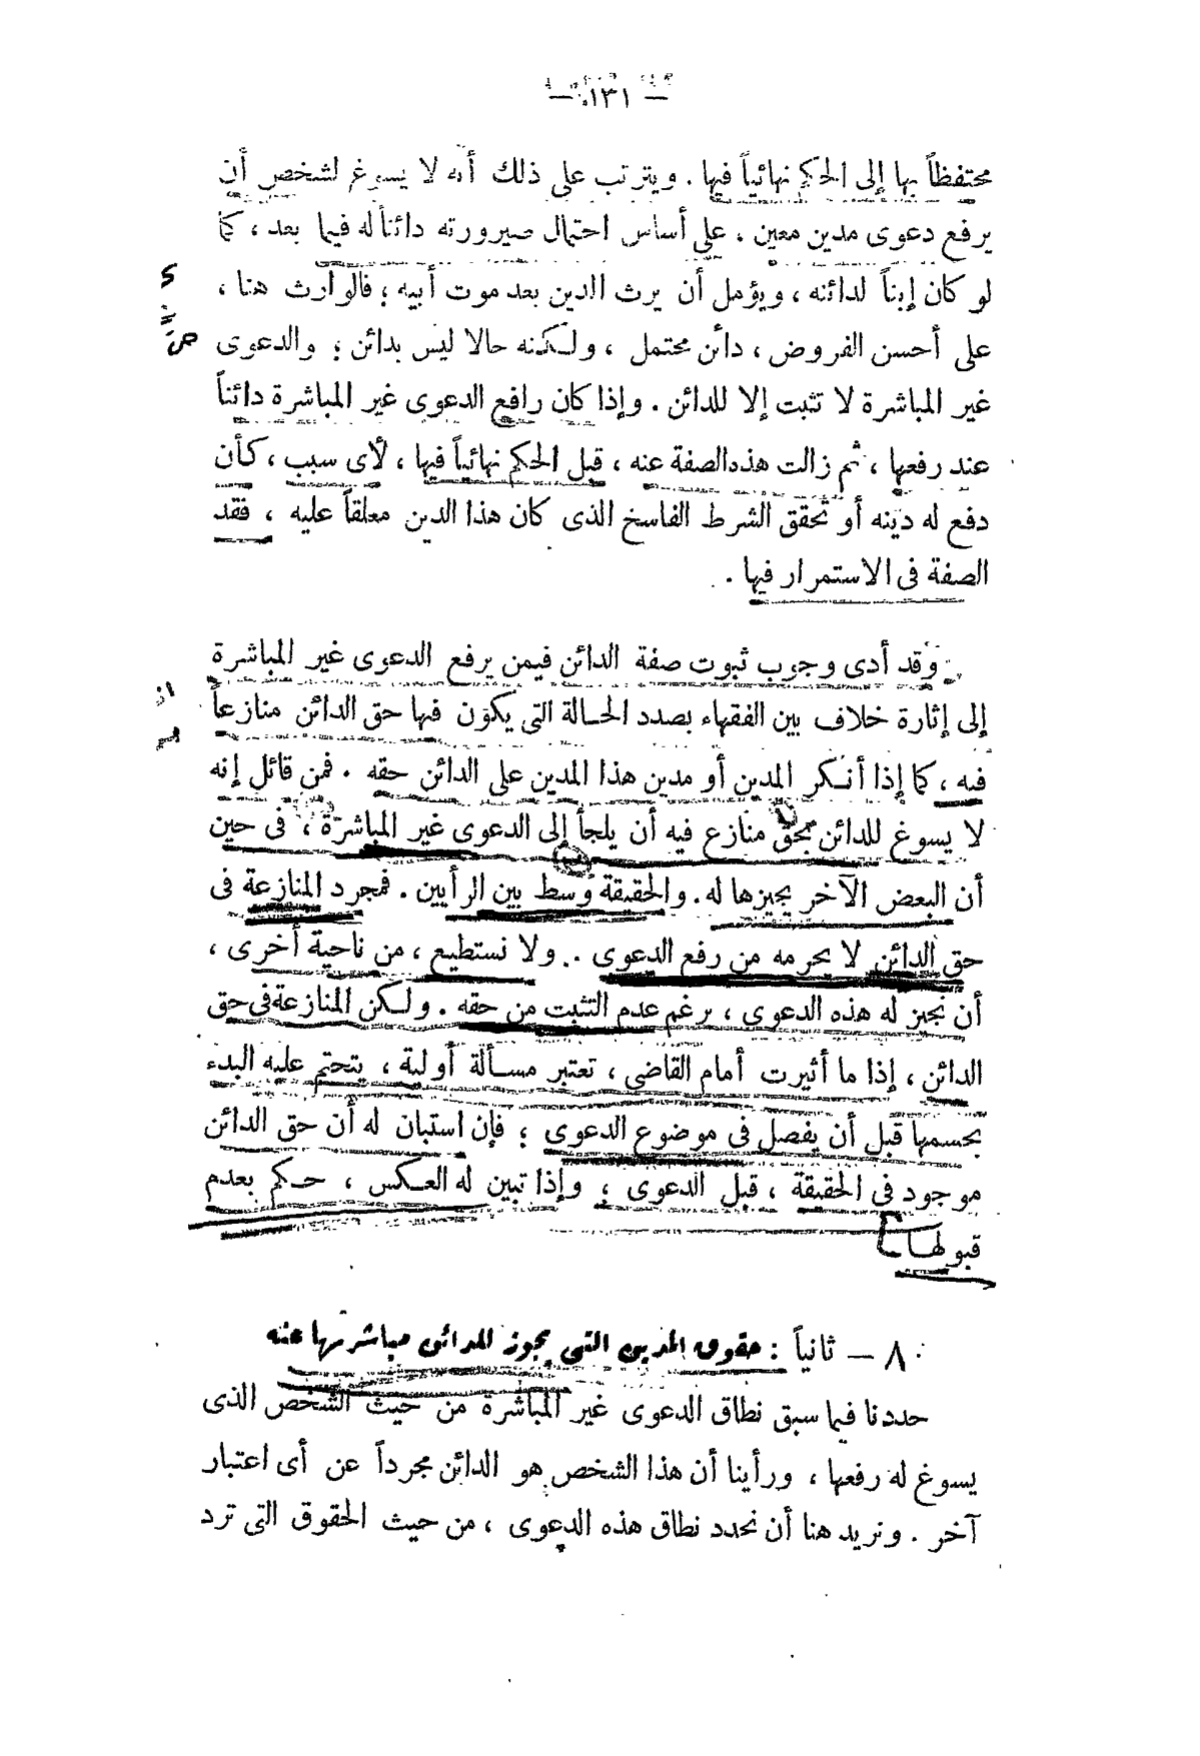 — ١٣١ —
محتفظاً بها إلى الحكم نهائياً فيها . ويترتب على ذلك أنه لا يسوغ لشخص أن
يرفع دعوى مدين معين ، على أساس احتمال صيرورته دائناً له فيما بعد ، كما
لو كان إبناً لدائنه ، ويؤمل أن يرث الدين بعد موت أبيه ؛ فالوارث هنا ،
على أحسن الفروض ، دائن محتمل ، ولكنه حالا ليس بدائن ؛ والدعوى
غير المباشرة لا تثبت إلا للدائن . وإذا كان رافع الدعوى غير المباشرة دائناً
عند رفعها ، ثم زالت هذه الصفة عنه ، قبل الحكم نهائياً فيها ، لأى سبب ، كأن
دفع له دينه أو تحقق الشرط الفاسخ الذى كان هذا الدين معلقاً عليه ، فقد
الصفة فى الاستمرار فيها .
وقد أدى وجوب ثبوت صفة الدائن فيمن يرفع الدعوى غير المباشرة
إلى إثارة خلاف بين الفقهاء بصدد الحالة التى يكون فيها حق الدائن منازعاً
فيه ، كما إذا أنكر المدين أو مدين هذا المدين على الدائن حقه . فمن قائل إنه
لا يسوغ للدائن بحق منازع فيه أن يلجأ إلى الدعوى غير المباشرة ، فى حين
أن البعض الآخر يجيزها له . والحقيقة وسط بين الرأيين . فمجرد المنازعة فى
حق الدائن لا يحرمه من رفع الدعوى . ولا نستطيع ، من ناحية أخرى ،
أن نجيز له هذه الدعوى ، برغم عدم التثبت من حقه . ولكن المنازعة فى حق
الدائن ، إذا ما أثيرت أمام القاضى ، تعتبر مسألة أولية ، يتحتم عليه البدء
بحسمها قبل أن يفصل فى موضوع الدعوى ؛ فإن استبان له أن حق الدائن
موجود فى الحقيقة ، قبل الدعوى ؛ وإذا تبين له العكس ، حكم بعدم
قبولها
٨٠ — ثانياً : حقوق المدين التى يجوز للدائن مباشرتها عنه
حددنا فيما سبق نطاق الدعوى غير المباشرة من حيث الشخص الذى
يسوغ له رفعها ، ورأينا أن هذا الشخص هو الدائن مجرداً عن أى اعتبار
آخر . ونريد هنا أن نحدد نطاق هذه الدعوى ، من حيث الحقوق التى ترد